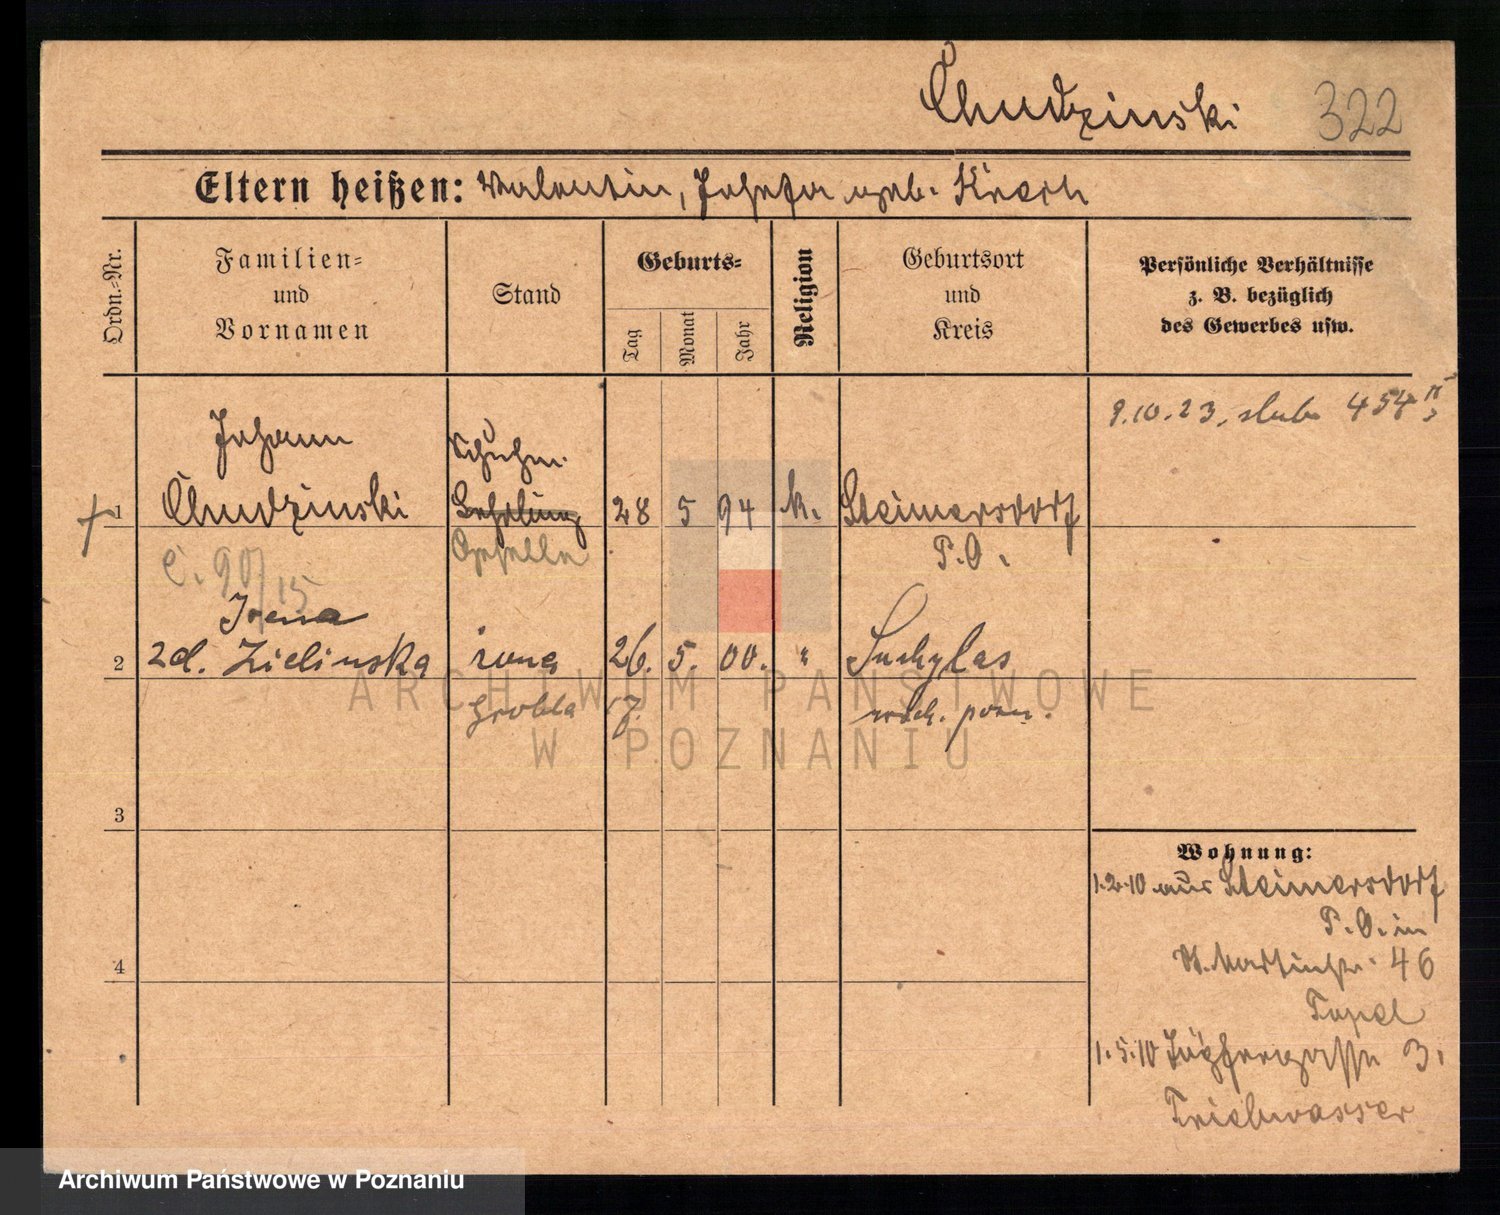 Chudzinski 322
Eltern heißen: Valentin, Josefa geb.
Ordn.-Nr.
Familien-
und
Vornamen
Stand
Geburts-
Tag
Monat
Jahr
Religion
Geburtsort
und
Kreis
Persönliche Verhältnisse
z. B. bezüglich
des Gewerbes usw.
9.10.23. slub 454
Johann
Schuhm.
1 Chudzinski Lehrling 28 5 94 k. Steimersdorf
Geselle P.O.
C. 90/15
Irena
2 zd. Zielinska żona 26. 5. 00. " Suchylas
Grobla 17. wsch. pozn.
3
4
Wohnung:
1.2.10 aus Steimersdorf
P.O. in
St. Martinstr. 46
1.5.10 3.
ARCHIWUM PAŃSTWOWE
W POZNANIU
Archiwum Państwowe w Poznaniu